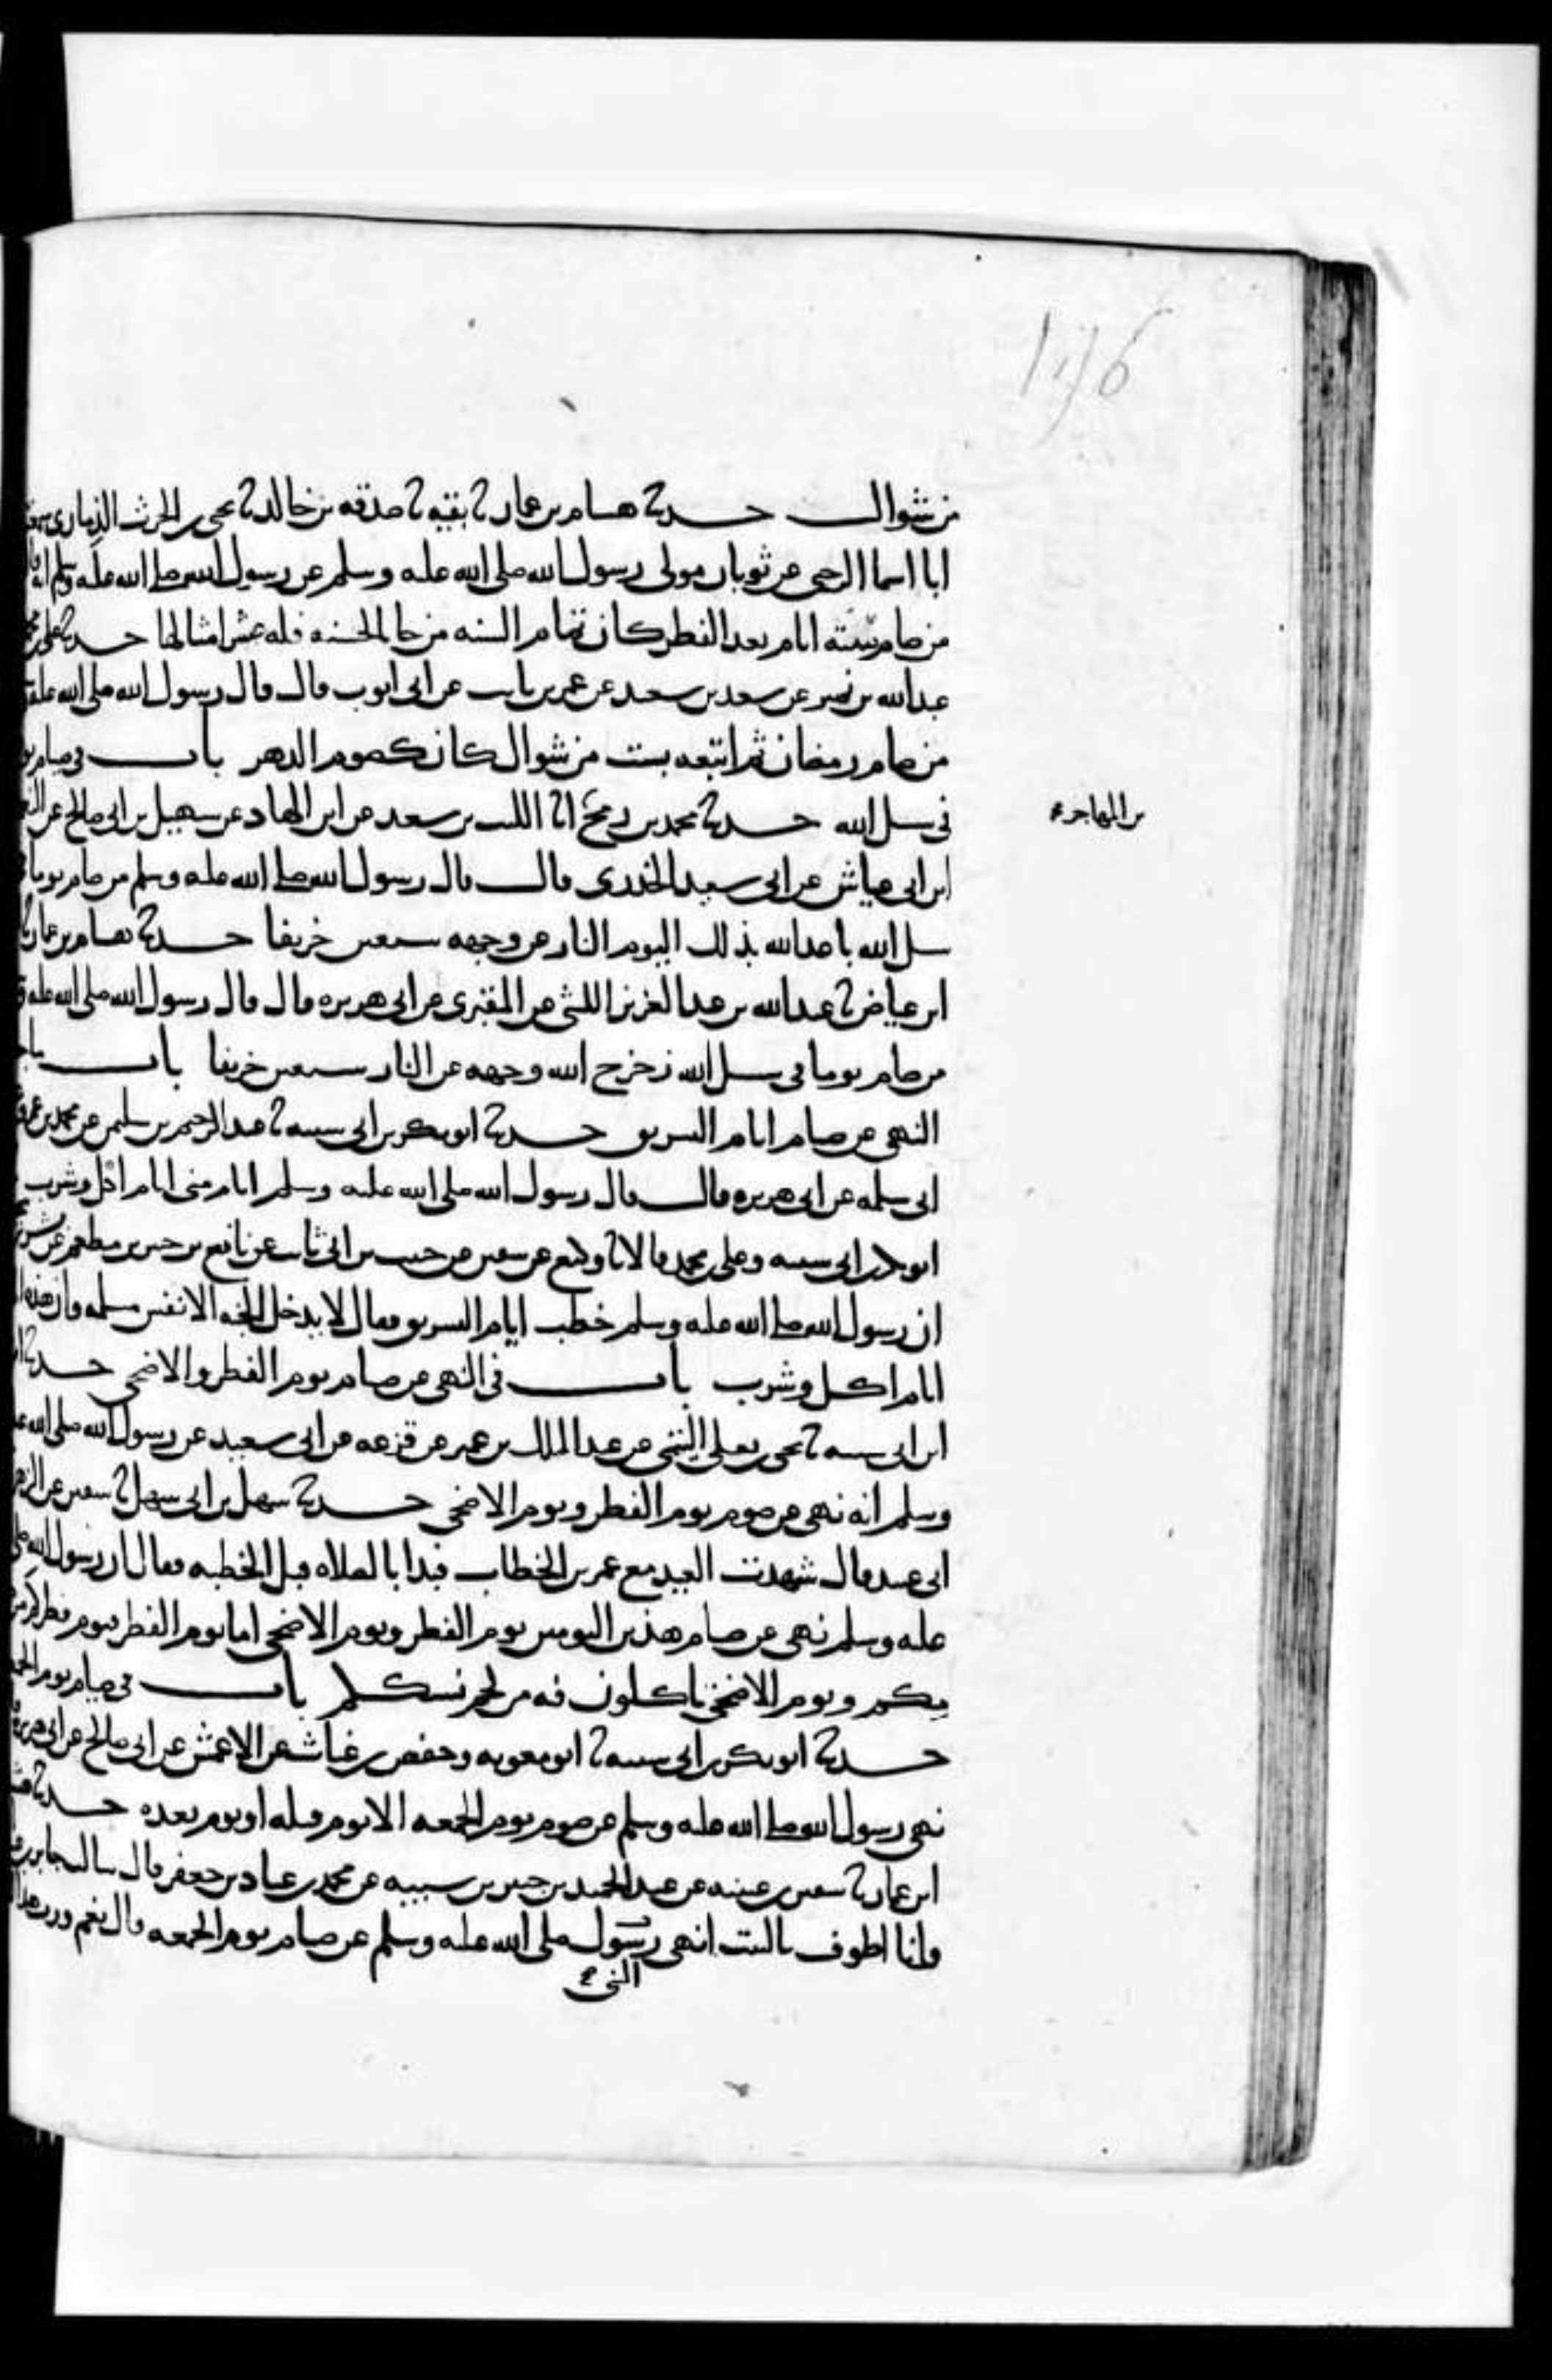 146
من شوال حدثنا هشام بن عمار ثنا بقية ثنا صدقه بن خالد ثنا يحيى بن الحرث الذماري سمعت
ابا اسما الرحبي عن ثوبان مولى رسول الله صلى الله عليه وسلم عن رسول الله صلى الله عليه وسلم انه قال
من صام ستة ايام بعد الفطر كان تمام السنه من جا بالحسنه فله عشر امثالها حدثنا علي بن محمد
عبد الله بن نمير عن سعد بن سعيد عن عمر بن ثابت عن ابي ايوب قال قال رسول الله صلى الله عليه
من صام رمضان ثم اتبعه بست من شوال كان كصوم الدهر باب في صيام يوم
في سبيل الله حدثنا محمد بن رمح انا الليث بن سعد عن ابن الهاد عن سهيل بن ابي صالح عن النعمن
بن المهاجر
ابن ابي عياش عن ابي سعيد الخدري قال قال رسول الله صلى الله عليه وسلم من صام يوما في
سبيل الله باعد الله بذلك اليوم النار عن وجهه سبعين خريفا حدثنا هشام بن عمار ثنا
ابن عياض ثنا عبد الله بن عبد العزيز الليثي عن المقبري عن ابي هريره قال قال رسول الله صلى الله عليه
من صام يوما في سبيل الله زحزح الله وجهه عن النار سبعين خريفا باب ما جا
النهي عن صيام ايام التشريق حدثنا ابو بكر بن ابي شيبه ثنا عبد الرحيم بن سليمن عن محمد بن عمرو
ابي سلمه عن ابي هريره قال قال رسول الله صلى الله عليه وسلم ايام منى ايام اكل وشرب
ابو بكر بن ابي شيبه وعلي بن محمد قالا ثنا وكيع عن سفين عن حبيب بن ابي ثابت عن نافع بن جبير بن مطعم عن بشر
ان رسول الله صلى الله عليه وسلم خطب ايام التشريق فقال لا يدخل الجنه الا نفس مسلمه وان هذه
ايام اكل وشرب باب في النهي عن صيام يوم الفطر والاضحى حدثنا
ابن ابي شيبه ثنا يحيى بن يعلى التيمي عن عبد الملك بن عمير عن قزعه عن ابي سعيد عن رسول الله صلى الله عليه
وسلم انه نهى عن صوم يوم الفطر ويوم الاضحى حدثنا سهل بن ابي سهل ثنا سفين عن الزهري
ابي عبيد قال شهدت العيد مع عمر بن الخطاب فبدا بالصلاه قبل الخطبه فقال ان رسول الله صلى
عليه وسلم نهى عن صيام هذين اليومين يوم الفطر ويوم الاضحى اما يوم الفطر فيوم فطركم من
ميكم ويوم الاضحى تاكلون فيه من لحم نسككم باب في صيام يوم الجمعه
حدثنا ابو بكر بن ابي شيبه ثنا ابو معويه وحفص بن غياث عن الاعمش عن ابي صالح عن ابي هريره
نهى رسول الله صلى الله عليه وسلم عن صوم يوم الجمعه الا يوم قبله او يوم بعده حدثنا هشام
ابن عمار ثنا سفين بن عيينه عن عبد الحميد بن جبير بن شيبه عن محمد بن عباد بن جعفر قال سالت جابر بن
وانا اطوف بالبيت انهى رسول صلى الله عليه وسلم عن صيام يوم الجمعه قال نعم ورب هذا
النبي